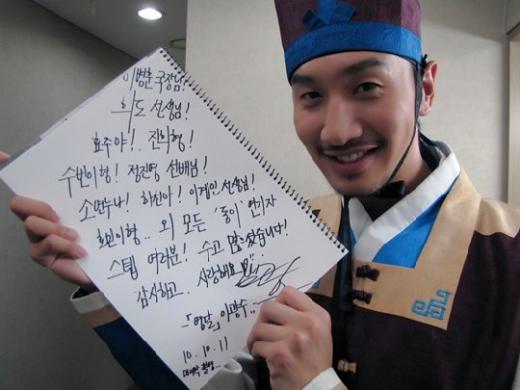 이병훈 국장님!
희도 선생님!
효주야!.. 진희형!
수빈이형! 정진영 선배님!
소연누나! 하선아! 이계인 선생님!
효빈이형.. 외 모든 '동이' 연기자
스텝 여러분! 수고 많으셨습니다!
감사하고.. 사랑해요
..「영달」 이광수..
10.10.11
마지막 촬영..